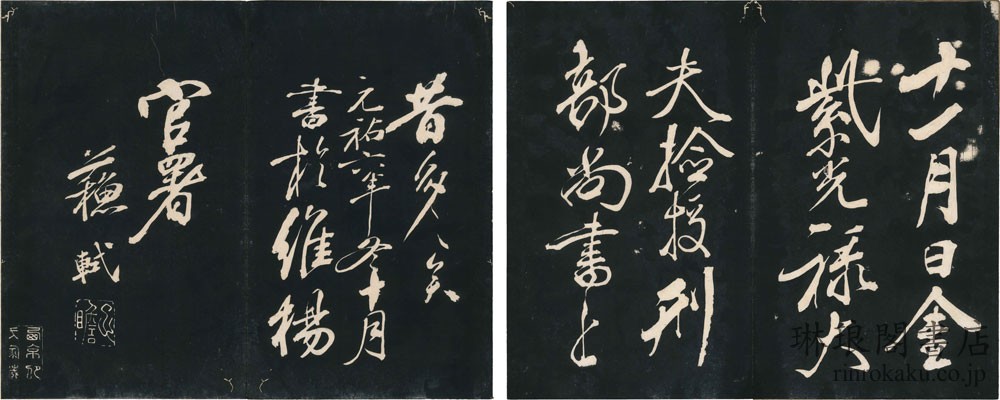 十一月日金
紫光祿大
夫撿挍刑
部尚書上
昔矣
元祐六年冬十月
書於維楊
官署
蘇軾
琳琅閣書店
rinrokaku.co.jp